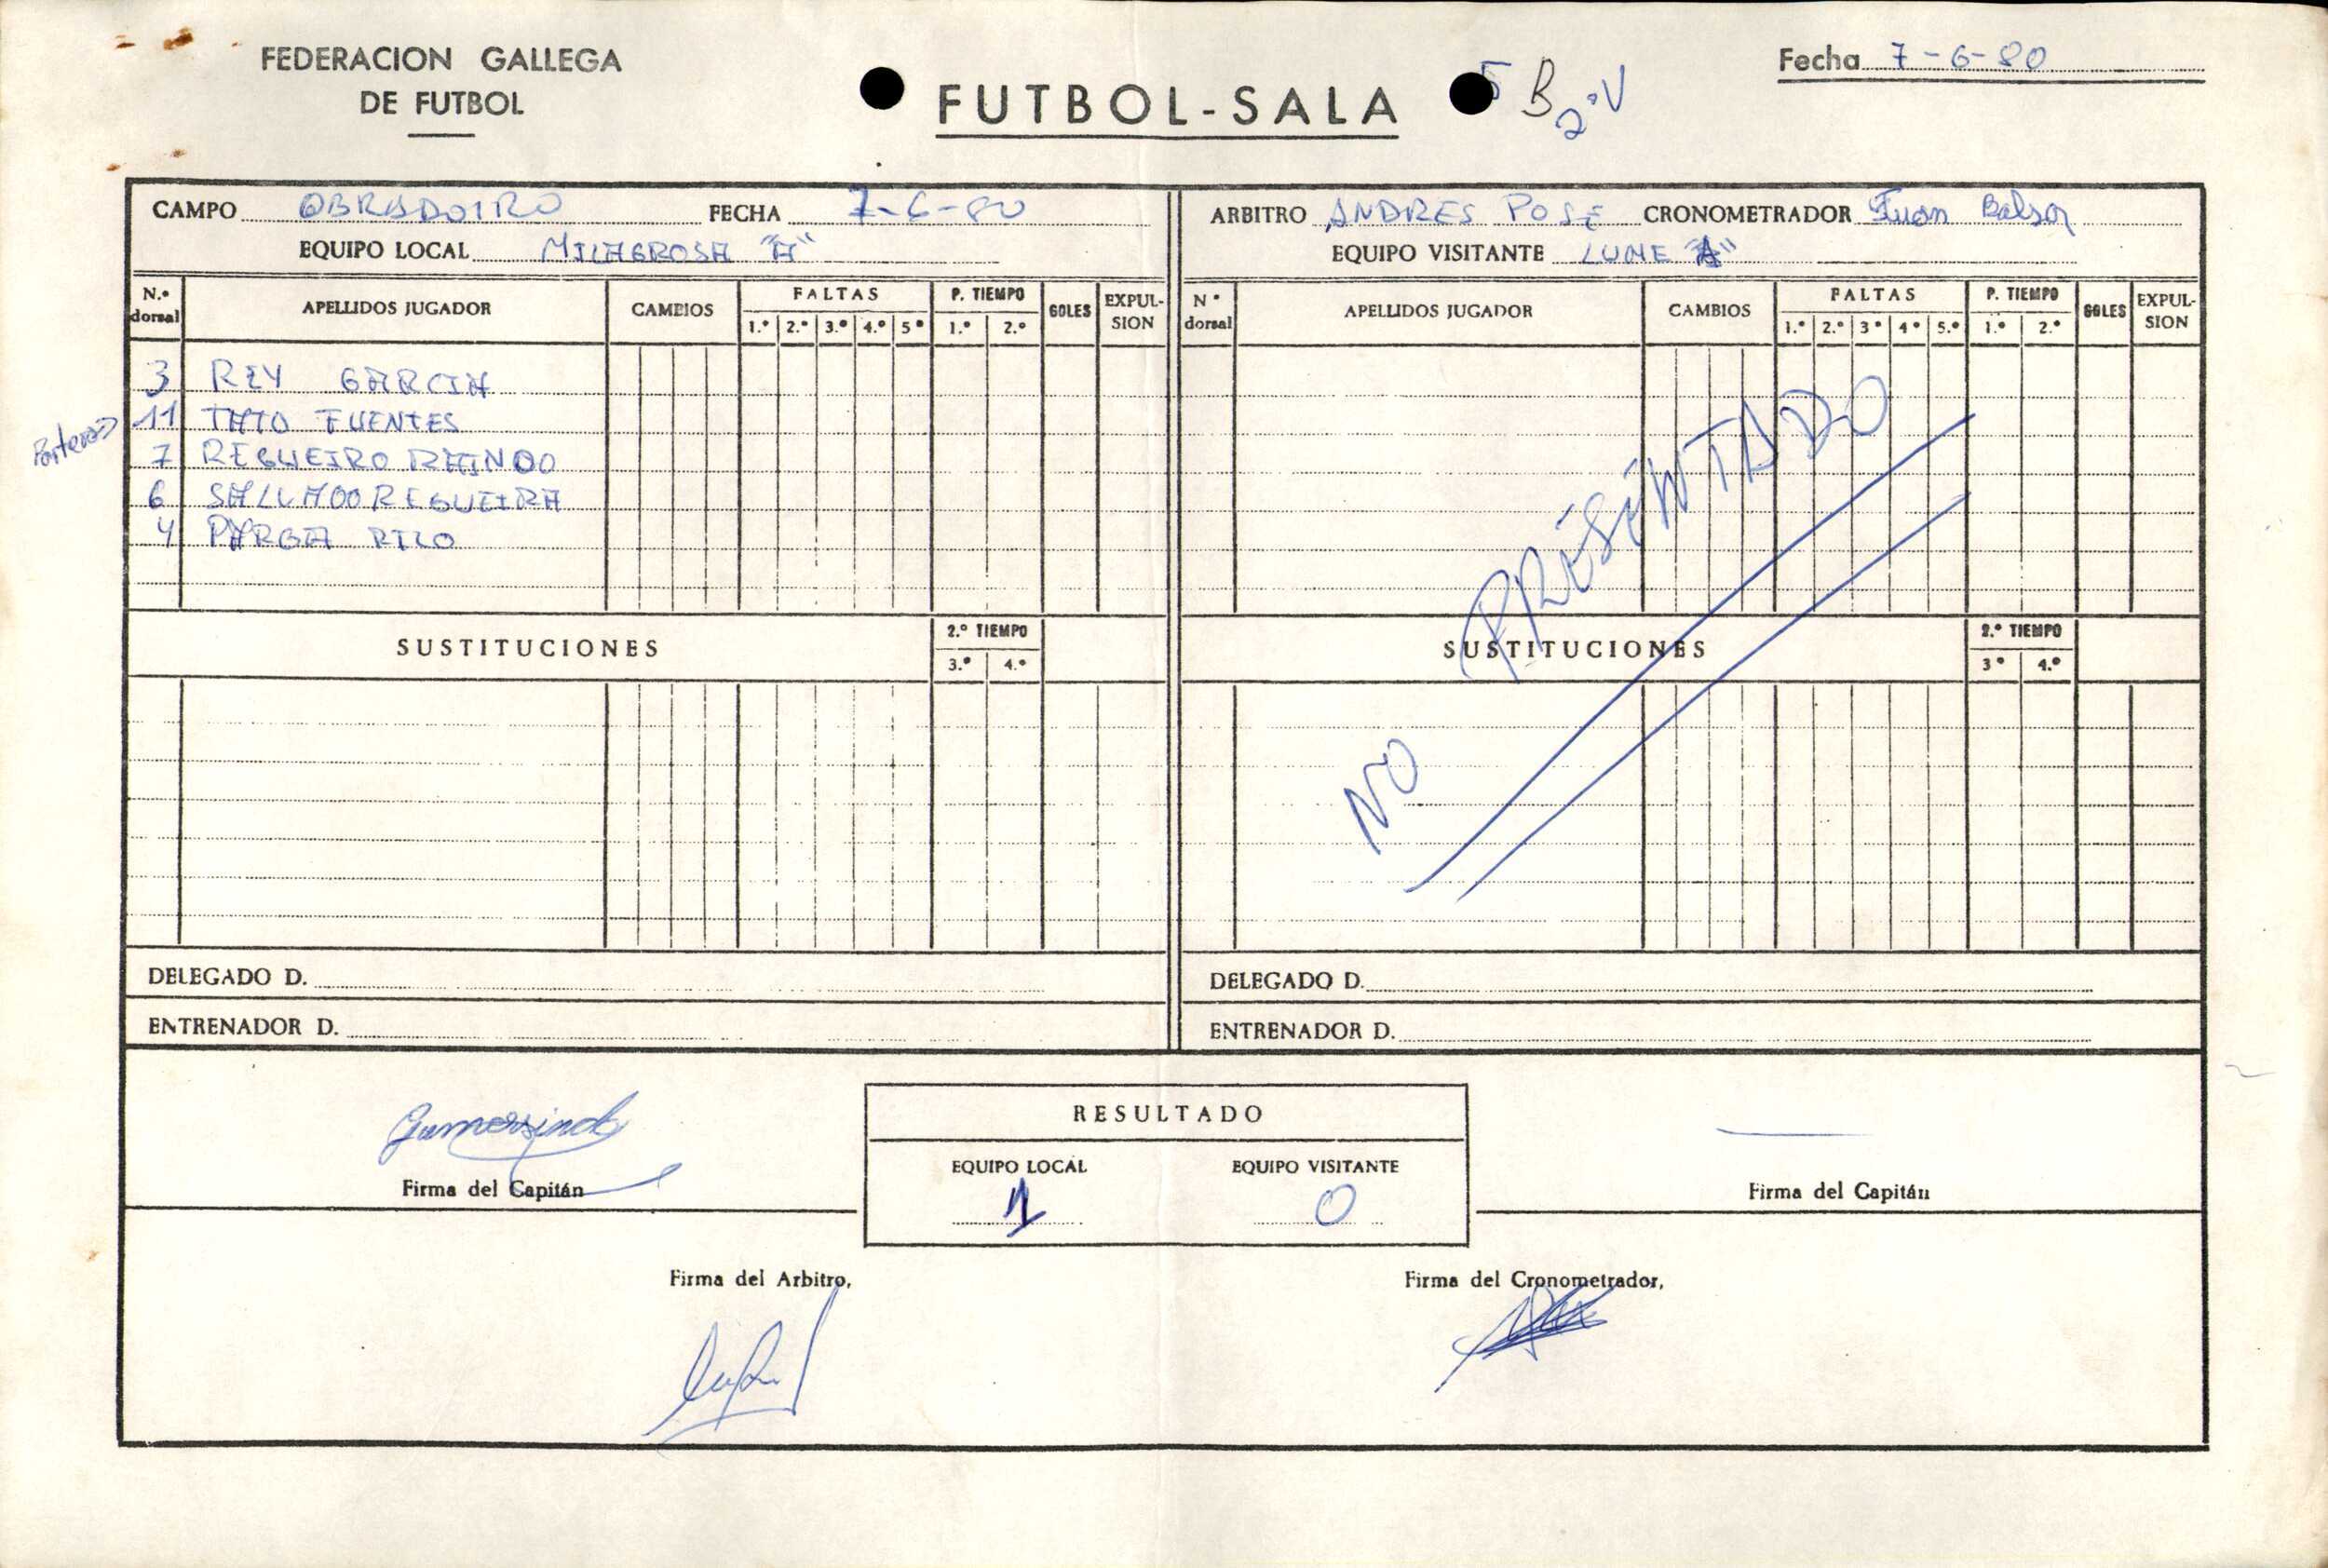 FEDERACION GALLEGA
DE FUTBOL
FUTBOL-SALA
B 2ªV
Fecha 7-6-80
CAMPO OBRADOIRO FECHA 7-6-80
EQUIPO LOCAL MILAGROSA "A"
ARBITRO ANDRES POSE CRONOMETRADOR Juan
EQUIPO VISITANTE LUME "A"
N.º dorsal APELLIDOS JUGADOR CAMBIOS FALTAS 1.º 2.º 3.º 4.º 5º P. TIEMPO 1.º 2.º GOLES EXPULSION
3 REY GARCIA
Portero 11 TATO FUENTES
7 REGUEIRO
6 REGUEIRA
4 PARGA RILO
SUSTITUCIONES 2.º TIEMPO 3.º 4.º
DELEGADO D.
ENTRENADOR D.
Nº dorsal APELLIDOS JUGADOR CAMBIOS FALTAS 1.º 2.º 3º 4º 5.º P. TIEMPO 1.º 2.º GOLES EXPULSION
NO PRESENTADO
SUSTITUCIONES 2.º TIEMPO 3º 4.º
DELEGADO D.
ENTRENADOR D.
Gumersindo
Firma del Capitán
RESULTADO
EQUIPO LOCAL EQUIPO VISITANTE
1 0
Firma del Capitán
Firma del Arbitro,
Firma del Cronometrador,